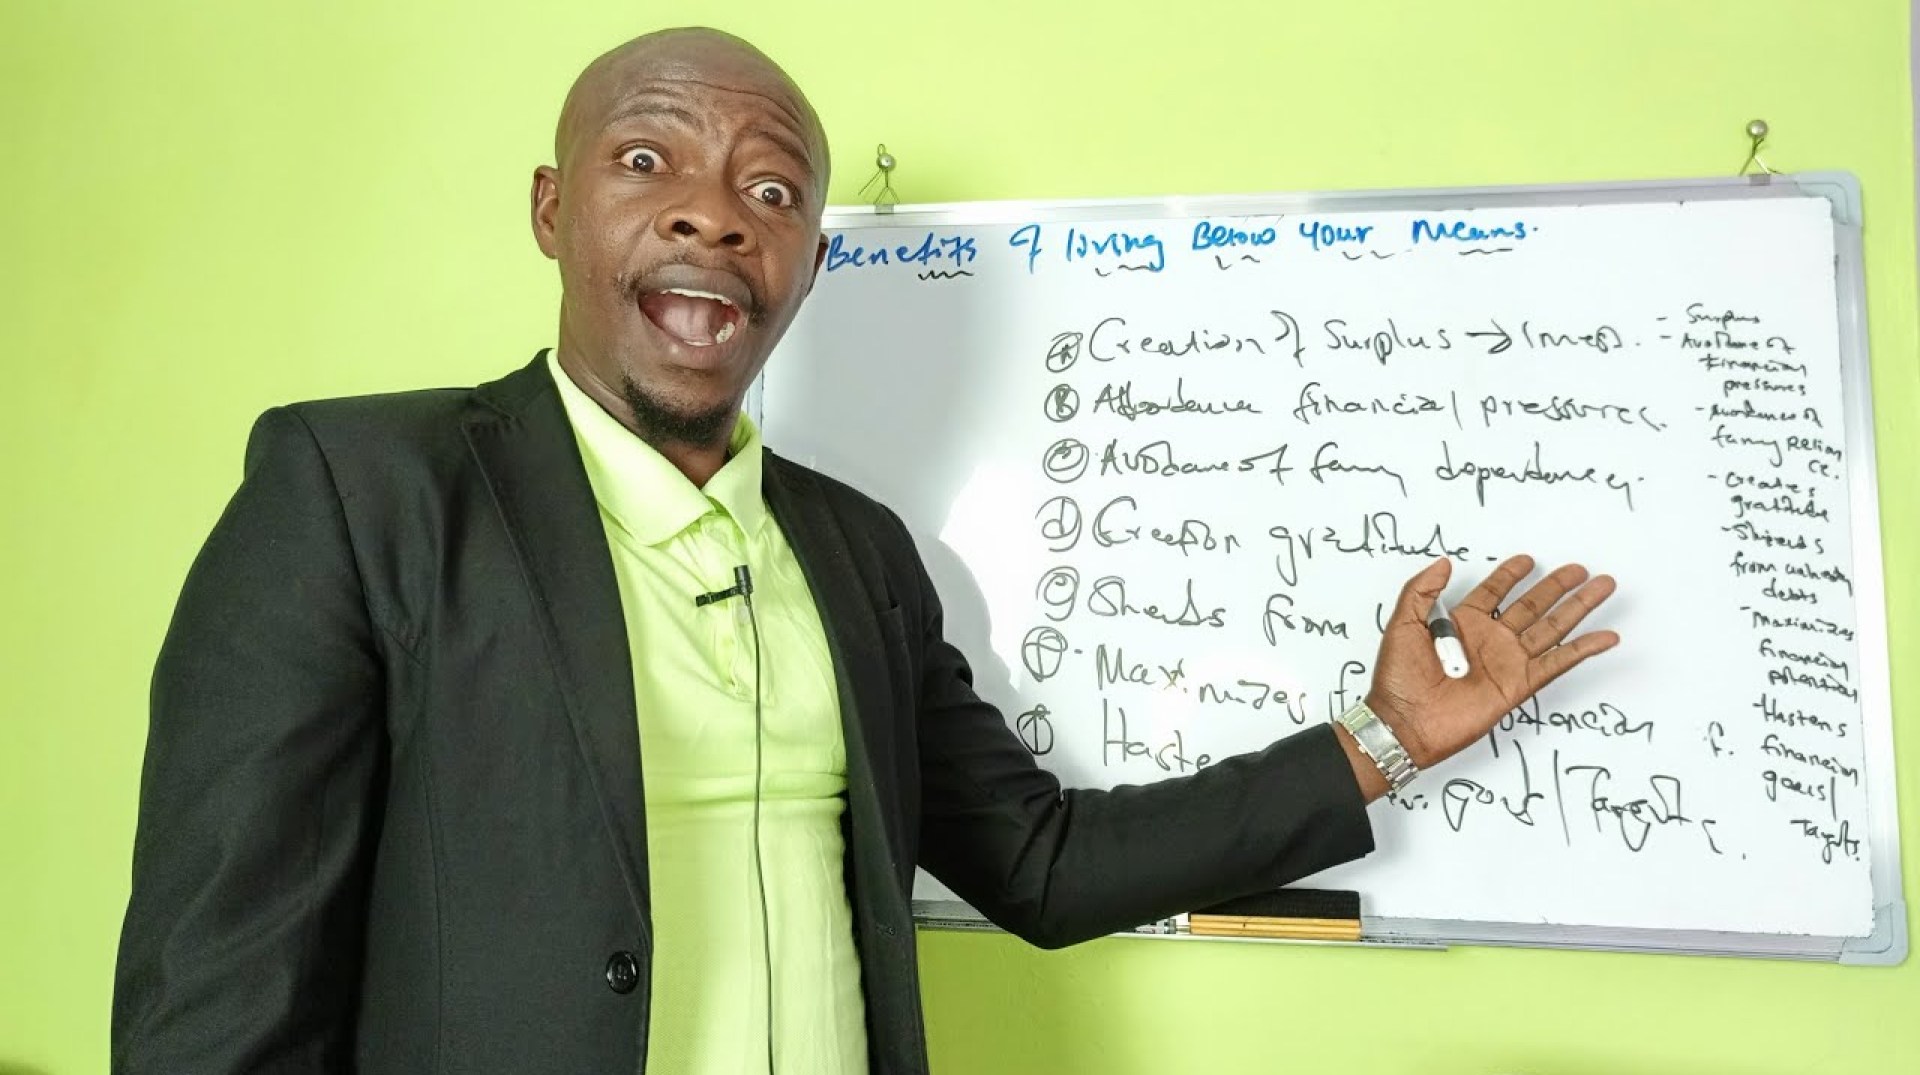 Benefits of living Below your Means.
A Creation of Surplus → Invest.
B Avoidance financial pressures.
C Avoidance of family dependency.
d Creation gratitude.
e Shields from
f. Maximizes potencial
Haste
goals/Targets.
- Surplus
- Avoidance of
financial
pressures
- Avoidance of
family Relian
ce.
- creates
gratitude
- Shields
from unhealthy
debts
- maximizes
financial
potencial
- Hastens
f. financial
goals/
Targets.